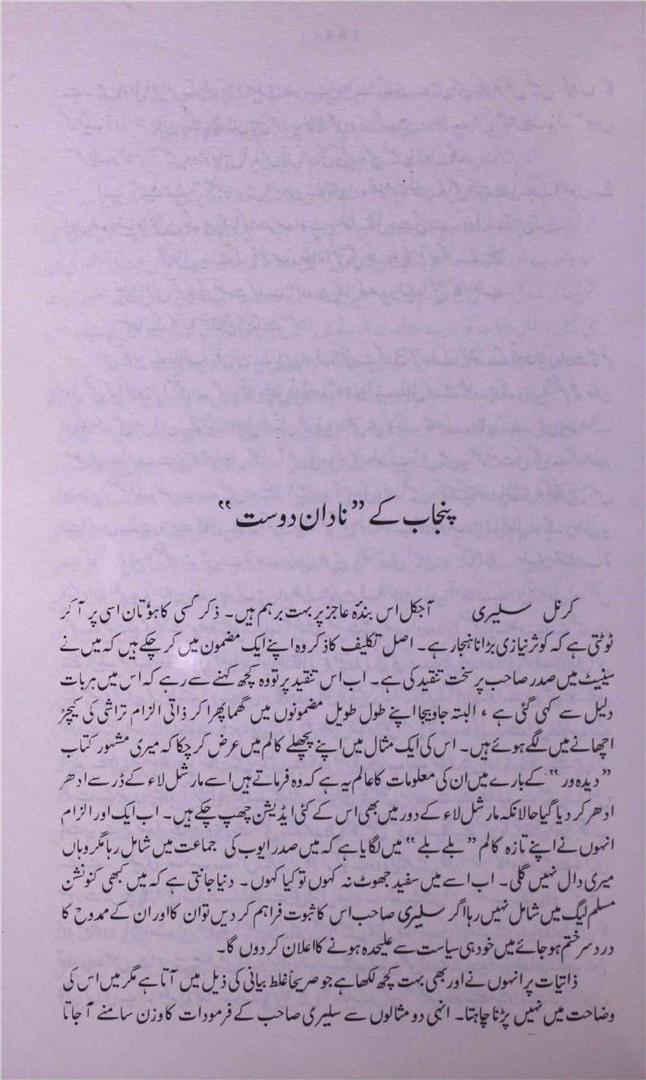 پنجاب کے ”نادان دوست“
کرنل سلیری آجکل اس بندۂ عاجز پر بہت برہم ہیں۔ ذکر کسی کا ہو تان اسی پر آ کر
ٹوٹتی ہے کہ کوثر نیازی بڑا ناہنجار ہے۔ اصل تکلیف کا ذکر وہ اپنے ایک مضمون میں کر چکے ہیں کہ میں نے
سینیٹ میں صدر صاحب پر سخت تنقید کی ہے۔ اب اس تنقید پر تو وہ کچھ کہنے سے رہے کہ اس میں ہر بات
دلیل سے کہی گئی ہے، البتہ جاوبیجا اپنے طول طویل مضمونوں میں گھما پھرا کر ذاتی الزام تراشی کی کیچڑ
اچھانے میں لگے ہوئے ہیں۔ اس کی ایک مثال میں اپنے پچھلے کالم میں عرض کر چکا کہ میری مشہور کتاب
”دیدہ ور“ کے بارے میں ان کی معلومات کا عالم یہ ہے کہ وہ فرماتے ہیں اسے مارشل لاء کے ڈر سے ادھر
ادھر کر دیا گیا حالانکہ مارشل لاء کے دور میں بھی اس کے کئی ایڈیشن چھپ چکے ہیں۔ اب ایک اور الزام
انہوں نے اپنے تازہ کالم ”بلے بلے“ میں لگایا ہے کہ میں صدر ایوب کی جماعت میں شامل رہا مگر وہاں
میری دال نہیں گلی۔ اب اسے میں سفید جھوٹ نہ کہوں تو کیا کہوں۔ دنیا جانتی ہے کہ میں کبھی کنونشن
مسلم لیگ میں شامل نہیں رہا اگر سلیری صاحب اس کا ثبوت فراہم کر دیں تو ان کا اور ان کے ممدوح کا
درد سر ختم ہو جائے میں خود ہی سیاست سے علیحدہ ہونے کا اعلان کر دوں گا۔
ذاتیات پر انہوں نے اور بھی بہت کچھ لکھا ہے جو صریحاً غلط بیانی کی ذیل میں آتا ہے مگر میں اس کی
وضاحت میں نہیں پڑنا چاہتا۔ انہی دو مثالوں سے سلیری صاحب کے فرمودات کا وزن سامنے آ جاتا